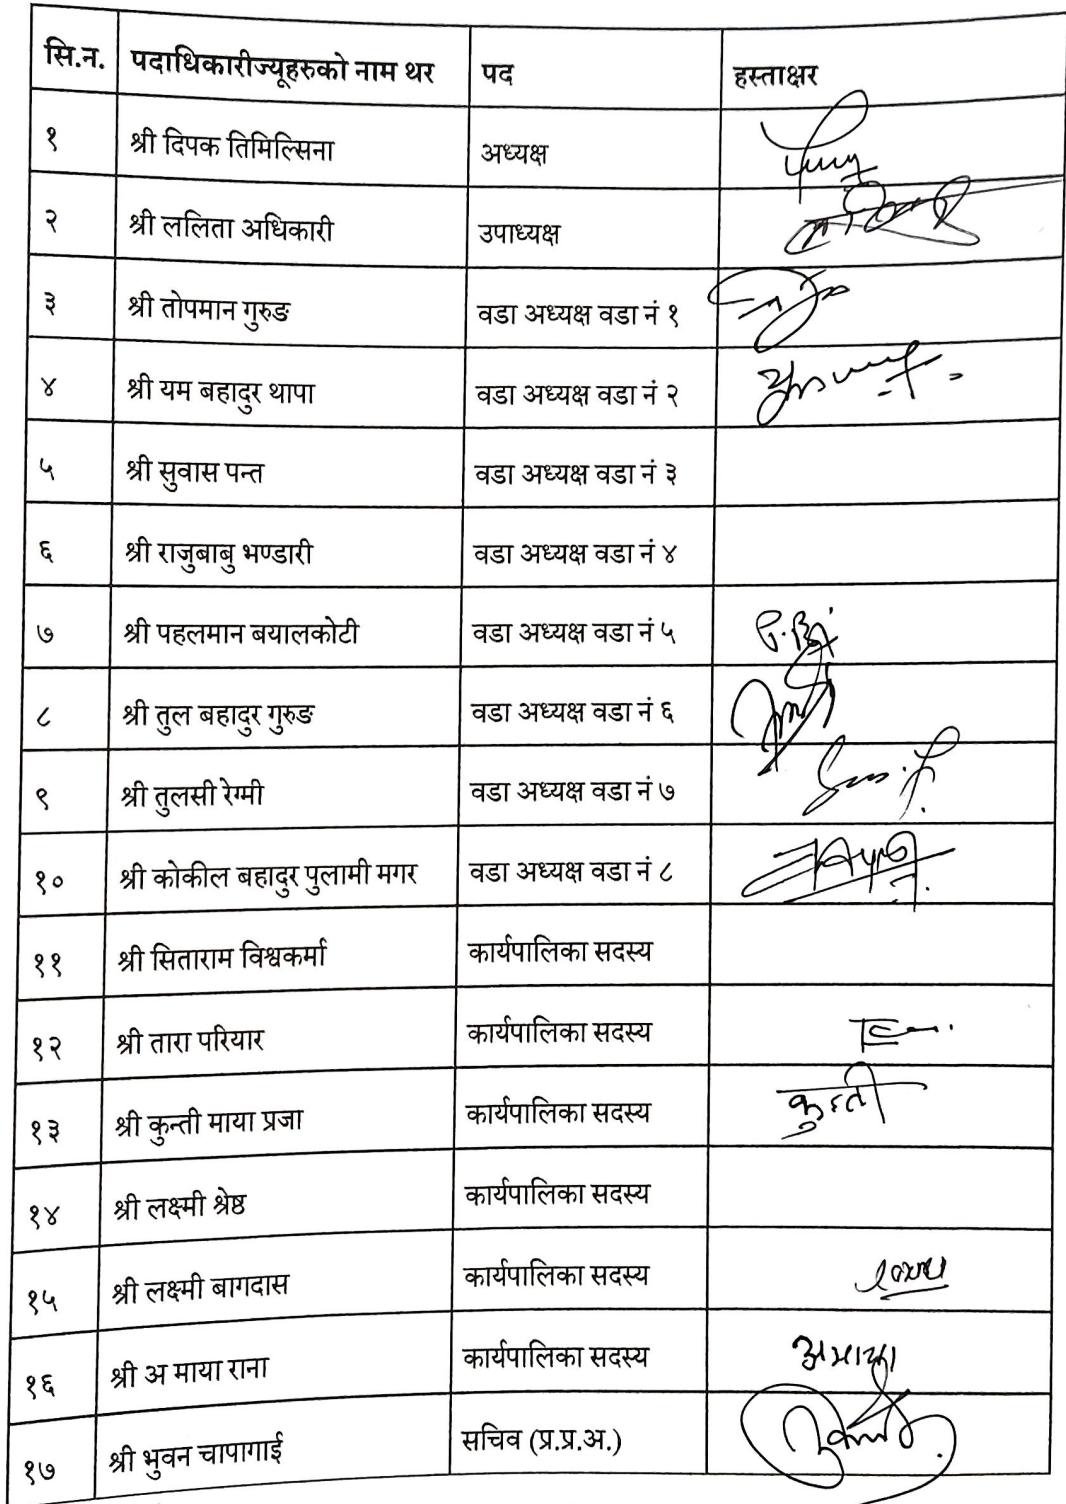 सि.न. पदाधिकारीज्यूहरुको नाम थर पद हस्ताक्षर
१ श्री दिपक तिमिल्सिना अध्यक्ष
२ श्री ललिता अधिकारी उपाध्यक्ष
३ श्री तोपमान गुरुङ वडा अध्यक्ष वडा नं १
४ श्री यम बहादुर थापा वडा अध्यक्ष वडा नं २
५ श्री सुवास पन्त वडा अध्यक्ष वडा नं ३
६ श्री राजुबाबु भण्डारी वडा अध्यक्ष वडा नं ४
७ श्री पहलमान बयालकोटी वडा अध्यक्ष वडा नं ५
८ श्री तुल बहादुर गुरुङ वडा अध्यक्ष वडा नं ६
९ श्री तुलसी रेग्मी वडा अध्यक्ष वडा नं ७
१० श्री कोकील बहादुर पुलामी मगर वडा अध्यक्ष वडा नं ८
११ श्री सिताराम विश्वकर्मा कार्यपालिका सदस्य
१२ श्री तारा परियार कार्यपालिका सदस्य
१३ श्री कुन्ती माया प्रजा कार्यपालिका सदस्य कुन्ती
१४ श्री लक्ष्मी श्रेष्ठ कार्यपालिका सदस्य
१५ श्री लक्ष्मी बागदास कार्यपालिका सदस्य
१६ श्री अ माया राना कार्यपालिका सदस्य अमाया
१७ श्री भुवन चापागाई सचिव (प्र.प्र.अ.)